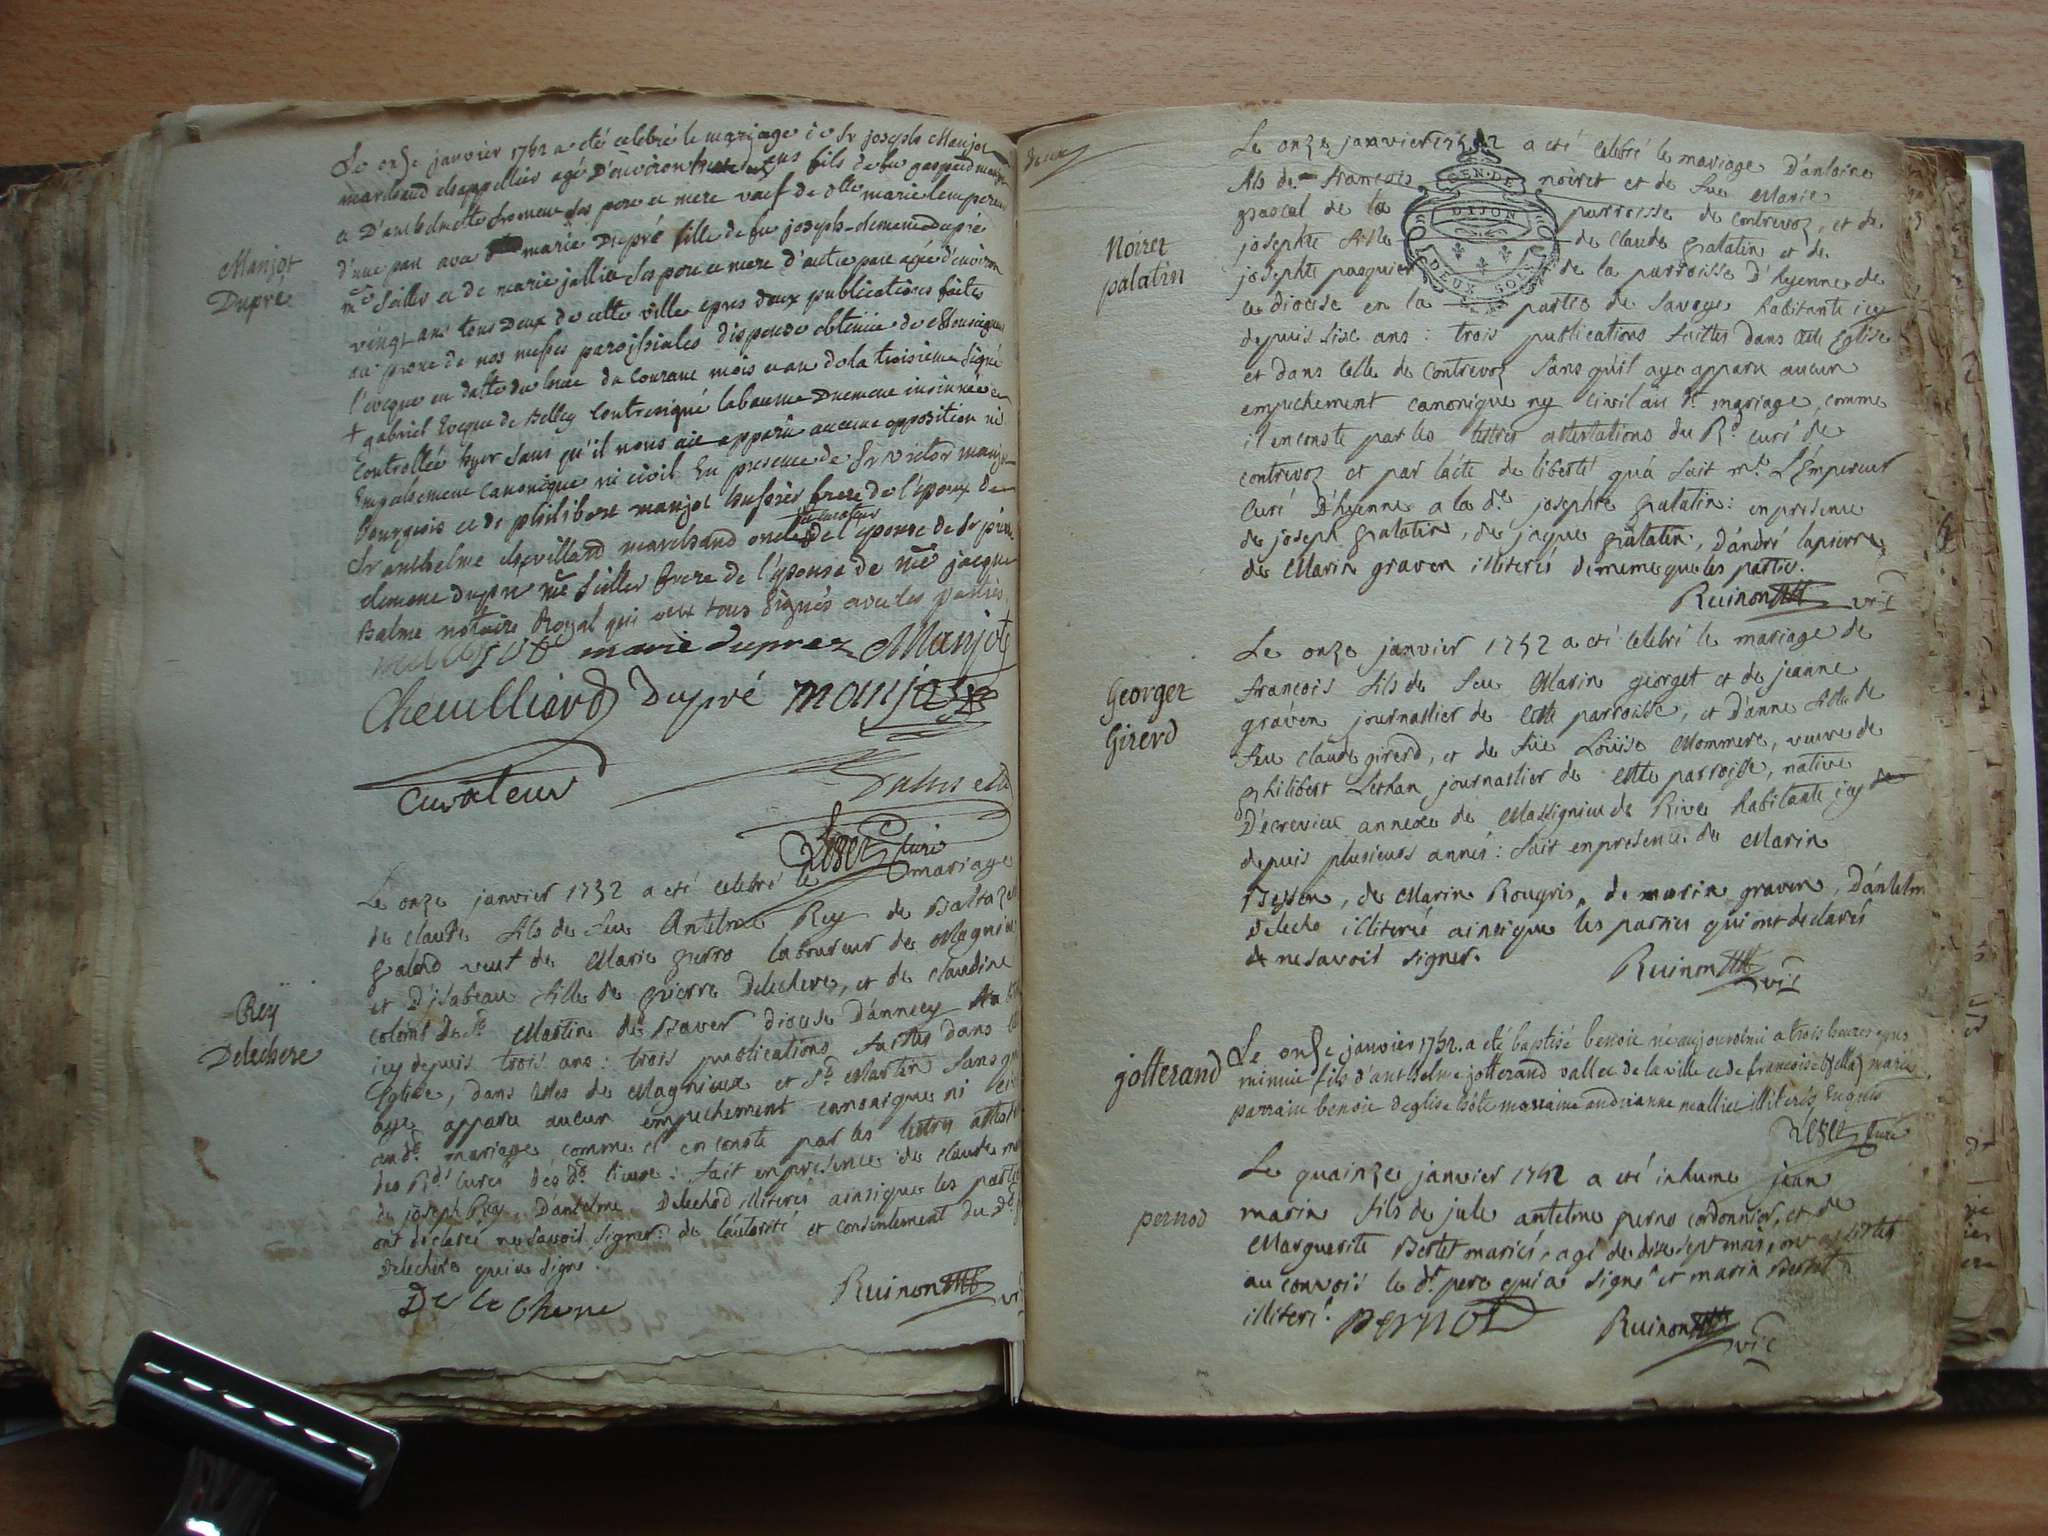 Manjot
Dupré
Le onze janvier 1752 a été celebré le mariage de Sr joseph Manjot
marchand chappellier agé D'environ ans fils de feu gaspard
et D'anthelmette ses pere et mere veuf de dlle marie Lempereur
d'une part avec marie Dupré fille de feu joseph clement Dupré
me Sellier et de marie jallier ses pere et mere d'autre part agée d'environ
vingt ans tous Deux de cette ville apres deux publications faites
au prone de nos messes paroissiales dispense obtenüe de Monseigneur
l'eveque en datte du du courant mois et an de la troisieme signé
+ gabriel Eveque de Belley contresigné labaume Duement insinuée et
Controllée hyer sans qu'il nous aie apparu aucune opposition ni
Empechement canonique ni civil En presence de Sr victor manjot
Bourgeois et de philibert manjot huissier frere de l'epoux de
Sr anthelme chevillard marchand curateur de l'epouse de Sr pierre
clement Dupré me Sellier frere de l'epouse de me jacque
Balme notaire Royal qui ont tous signés avec les parties
marie duprez Manjot
Cheuilliard Dupré manjot
curateur
curé
Rey
Delechere
Le onze janvier 1752 a eté celebré le mariage
de claude fils de feu Antelme Rey de Baltaze
galand veuf de Marie perro laboureur de Magnieu
et D'isabeau fille de pierre Delechere, et de claudine
colomb de St Martin de Baver diocese D'annecy
icy depuis trois ans : trois publications faittes dans
Eglise, dans celles de Magnieux et St Martin sans
aye apparu aucun empechement canonique ni
au dt mariage comme il en conste par les lettres
des Rds curés des dts lieux : fait en presence de claude
de joseph Rey, D'antelme Delechod illiterés ainsique les parties
ont declaré ne savoir signer : de l'autorité et consentement du
Delechere qui a signé.
De le Chere
Ruinon
deux
GEN. DE
DIJON
DEUX SOLS
Noiret
palatin
Le onze janvier 1752 a eté celebré le mariage D'antoine
fils de François noiret et de fue Marie
pascal de la parroisse de Contrevoz, et de
josephte fille de Claude palatin et de
josephte pasquier de la parroisse D'hyenne de
ce diocese en la partie de Savoye habitante icy
depuis sixe ans : trois publications faittes dans cette Eglise
et dans celle de Contrevoz sans qu'il aye apparu aucun
empechement canonique ny civil au dt mariage, comme
il en conste par les lettres attestations du Rd curé de
contrevoz et par l'acte de liberté qu'a fait mre L'Empereur
Curé D'hyenne a la de josephte palatin : en presence
de joseph palatin, de jaque palatin, D'andré lapierre
de Marin graven illiterés de meme que les parties.
Ruinon vic
Georget
Girerd
Le onze janvier 1752 a eté celebré le mariage de
François fils de feu Marin georget et de jeanne
graven journallier de cette parroisse, et D'anne fille de
feu claude girerd, et de füe Loüise Mommere, veuve de
philibert Lethan journallier de cette parroisse, native
D'écrevieu annexe de Massignieu de Rive habitante icy
depuis plusieurs années : fait en presence de Marin
Beyson, de Marin Rougris, de marin graven, D'antelme
Deleche illiterés ainsique les parties qui ont declarés
ne savoir signer.
Ruinon vic
jotterand
Le onze janvier 1752 a été baptisé benoit né aujourdhui a trois heures apres
minuit fils d'anthelme jotterand vallet de la ville et de francoise mariés
parrain benoit deglise hôte marraine andrianne meallier illiterés Enquis
curé
pernod
Le quinze janvier 1752 a eté inhumé jean
marin fils de jule antelme perno cordonnier, et de
Marguerite Bertet mariés, agé de dix sept mois, ont assistés
au convoit le dt pere qui a signé et marin Bertet
illiteré.
pernod Ruinon vic